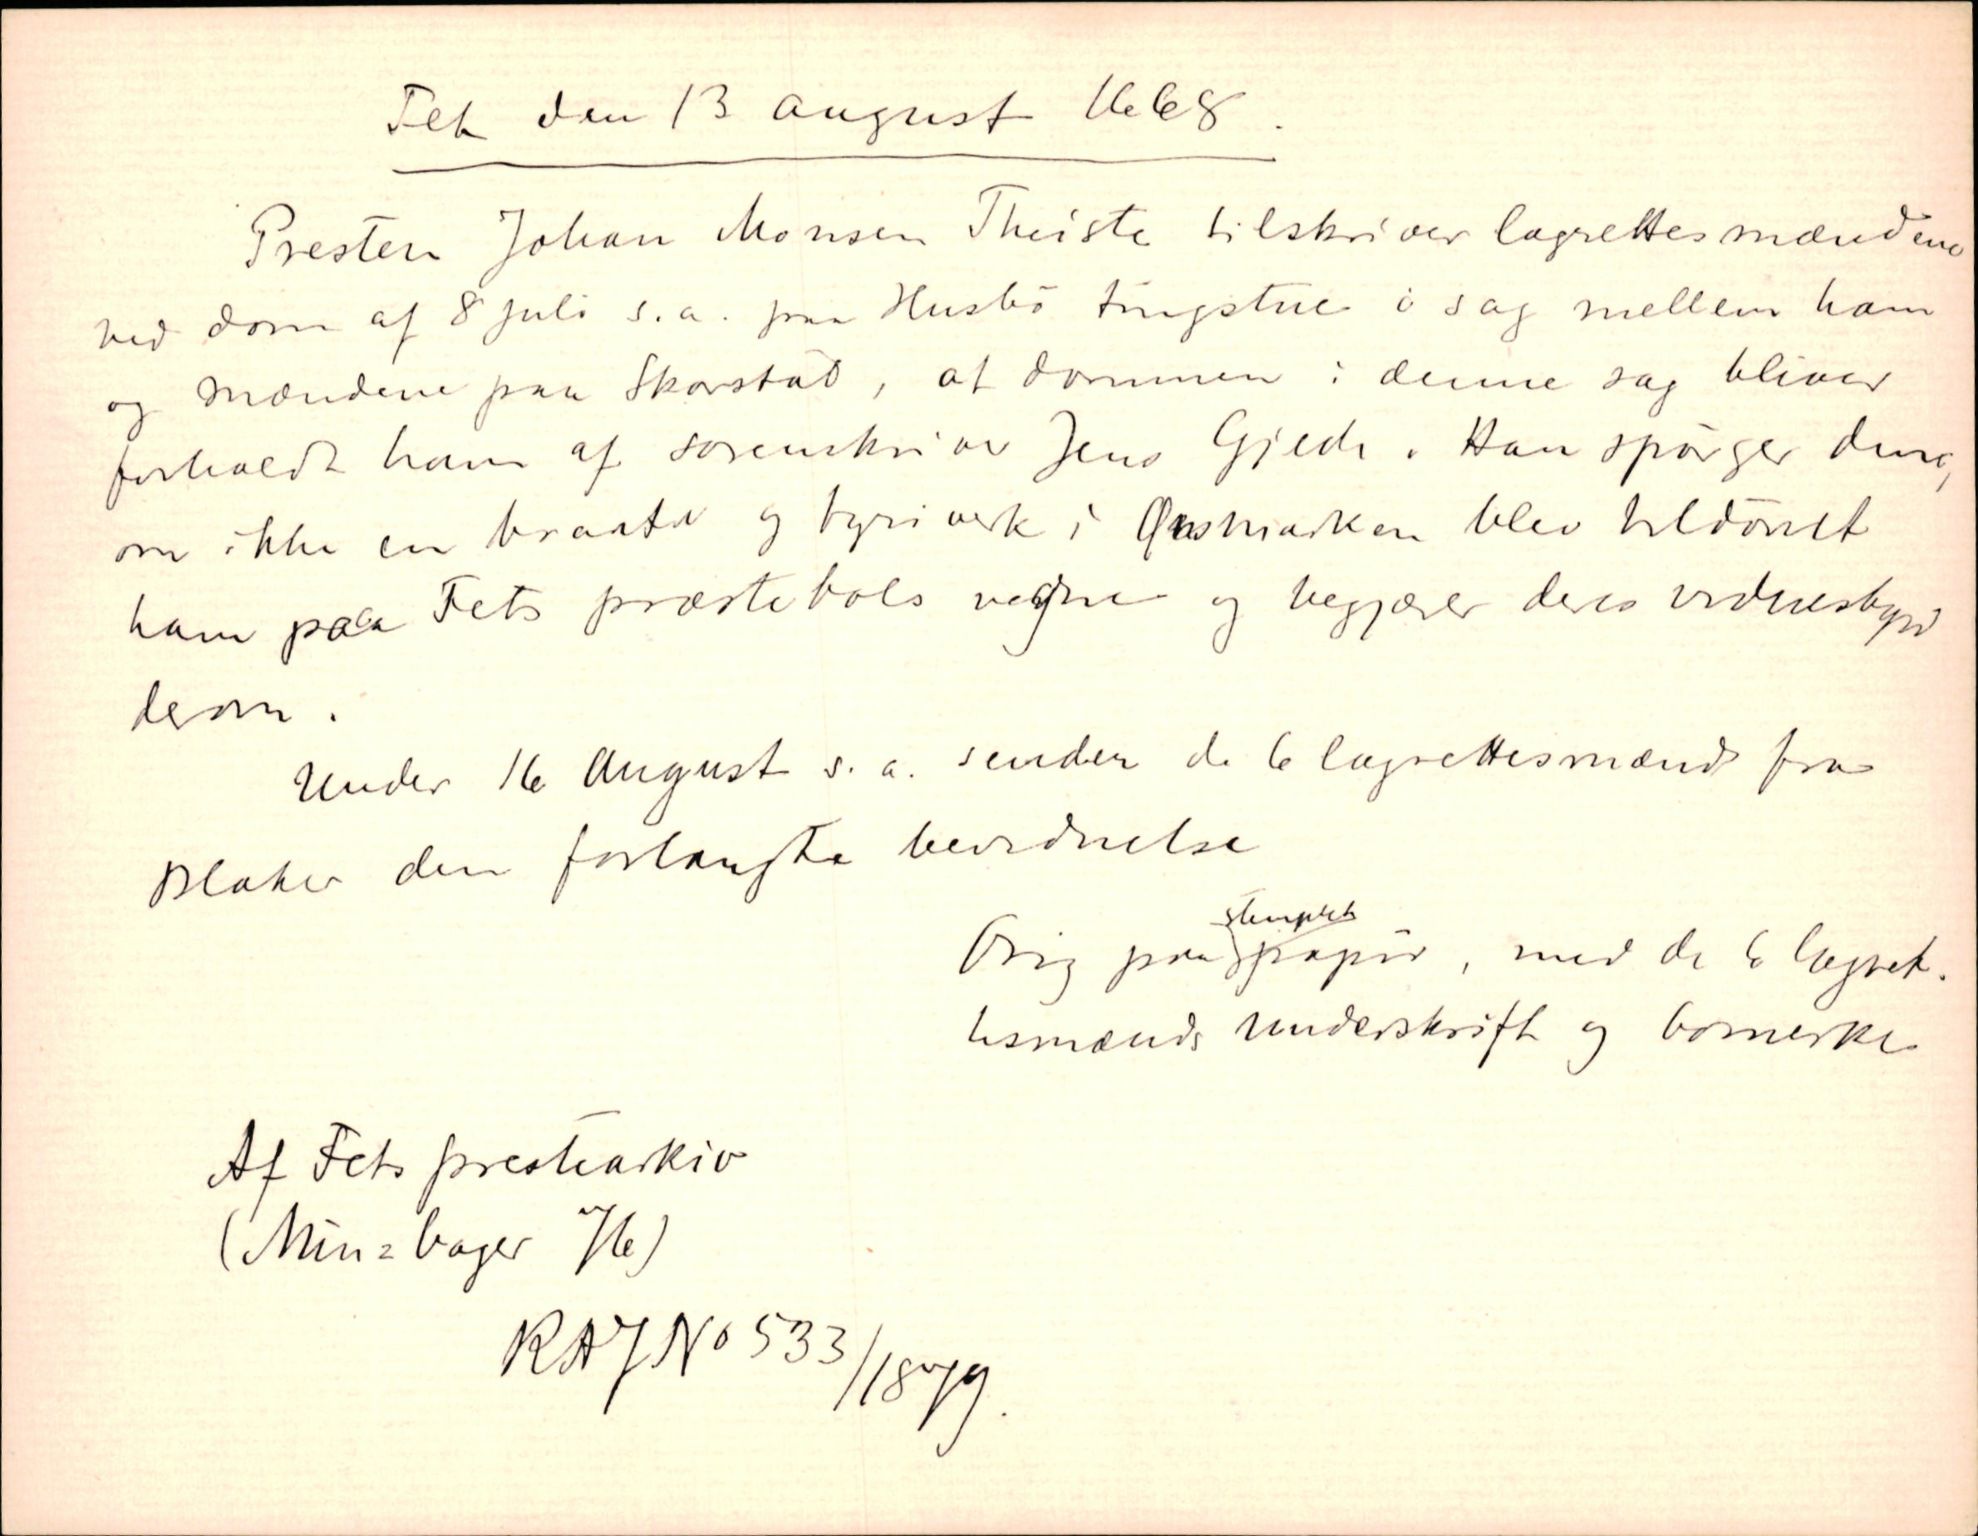 Fet den 13 august 1668.
Presten Johan Monsen Theiste tilskriver lagrettesmændene
ved dom af 8 juli s.a. paa Husbö tingstue i sag mellem ham
og mændene paa Skovstad, at dommen i denne sag bliver
forholdt ham af sorenskriver Jens Gjede. Han spörger dem,
om ikke en braate og tyriverk i marken blev tildömt
ham paa Fets prestebols vegne og begjærer deres vidnesbyrd
derom.
Under 16 August s.a. sender de 6 lagrettesmænd fra
Blaker den forlangte bevidnelse
Orig paa stemplet papir, med de 6 lagret-
tesmænds underskrift og bomerke
Af Fets prestearkiv
(Min=bager 7/6)
RAJ No 533/1879.